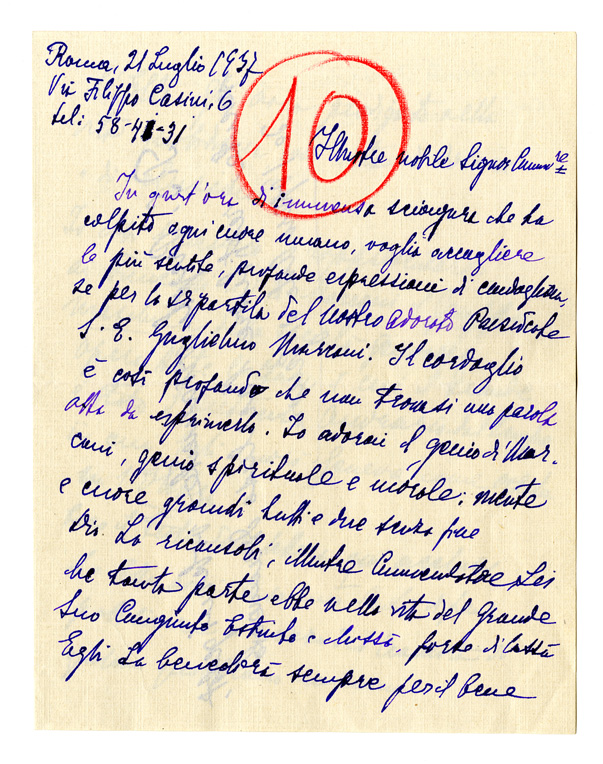 Roma, 21 Luglio 1937
Via Filippo Casini, 6
tel: 58-41-31
10
Illustre nobile Signor Comm.re
In quest'ora di immensa sciagura che ha
colpito ogni cuore umano, voglia accogliere
le più sentite, profonde espressioni di condoglian-
ze per la dipartita del nostro adorato Presidente
S. E. Guglielmo Marconi. Il cordoglio
è così profondo che non trovasi una parola
atta da esprimerlo. Io adorai il genio di Mar-
coni, genio spirituale e morale; mente
e cuore grandi tutti e due senza fine
Dio La ricunsoli, illustre Commendatore, Lei
che tanta parte ebbe nella vita del Grande
Suo Congiunto Estinto e chissà, forse di lassù
Egli La benedirà sempre per il bene